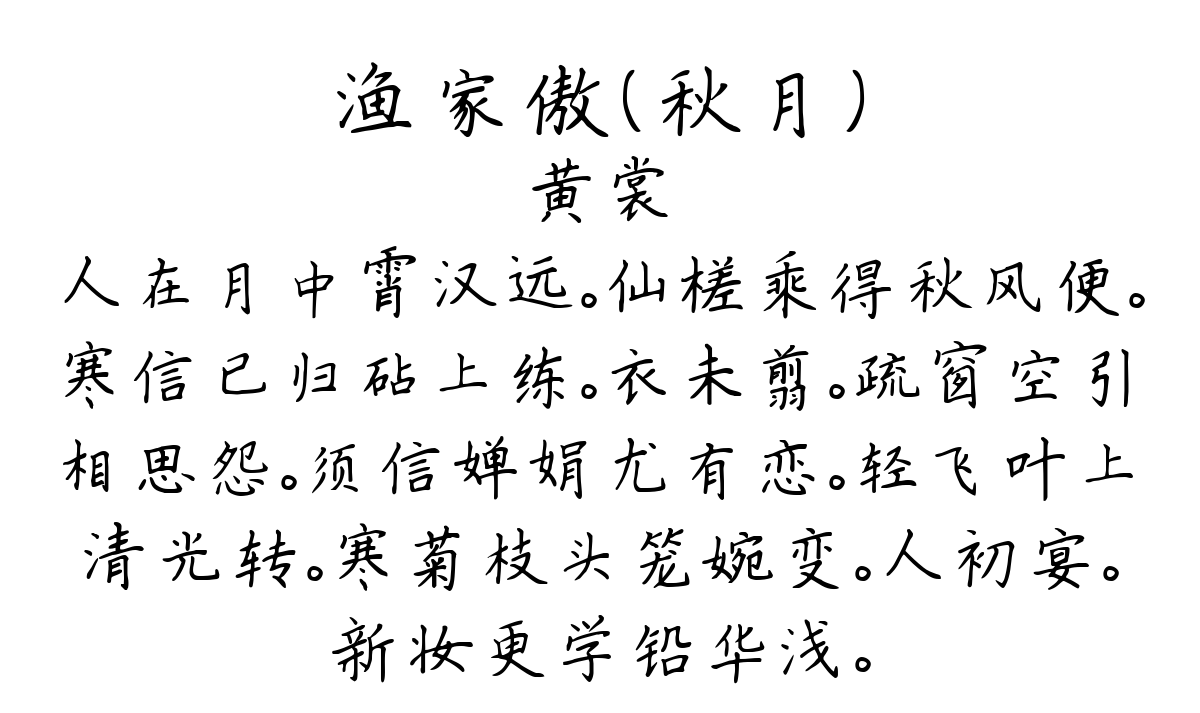 渔家傲(秋月)
黄裳
人在月中霄汉远。仙槎乘得秋风便。
寒信已归砧上练。衣未剪。疏窗空引
相思怨。须信婵娟尤有恋。轻飞叶上
清光转。寒菊枝头笼婉变。人初宴。
新妆更学铅华浅。